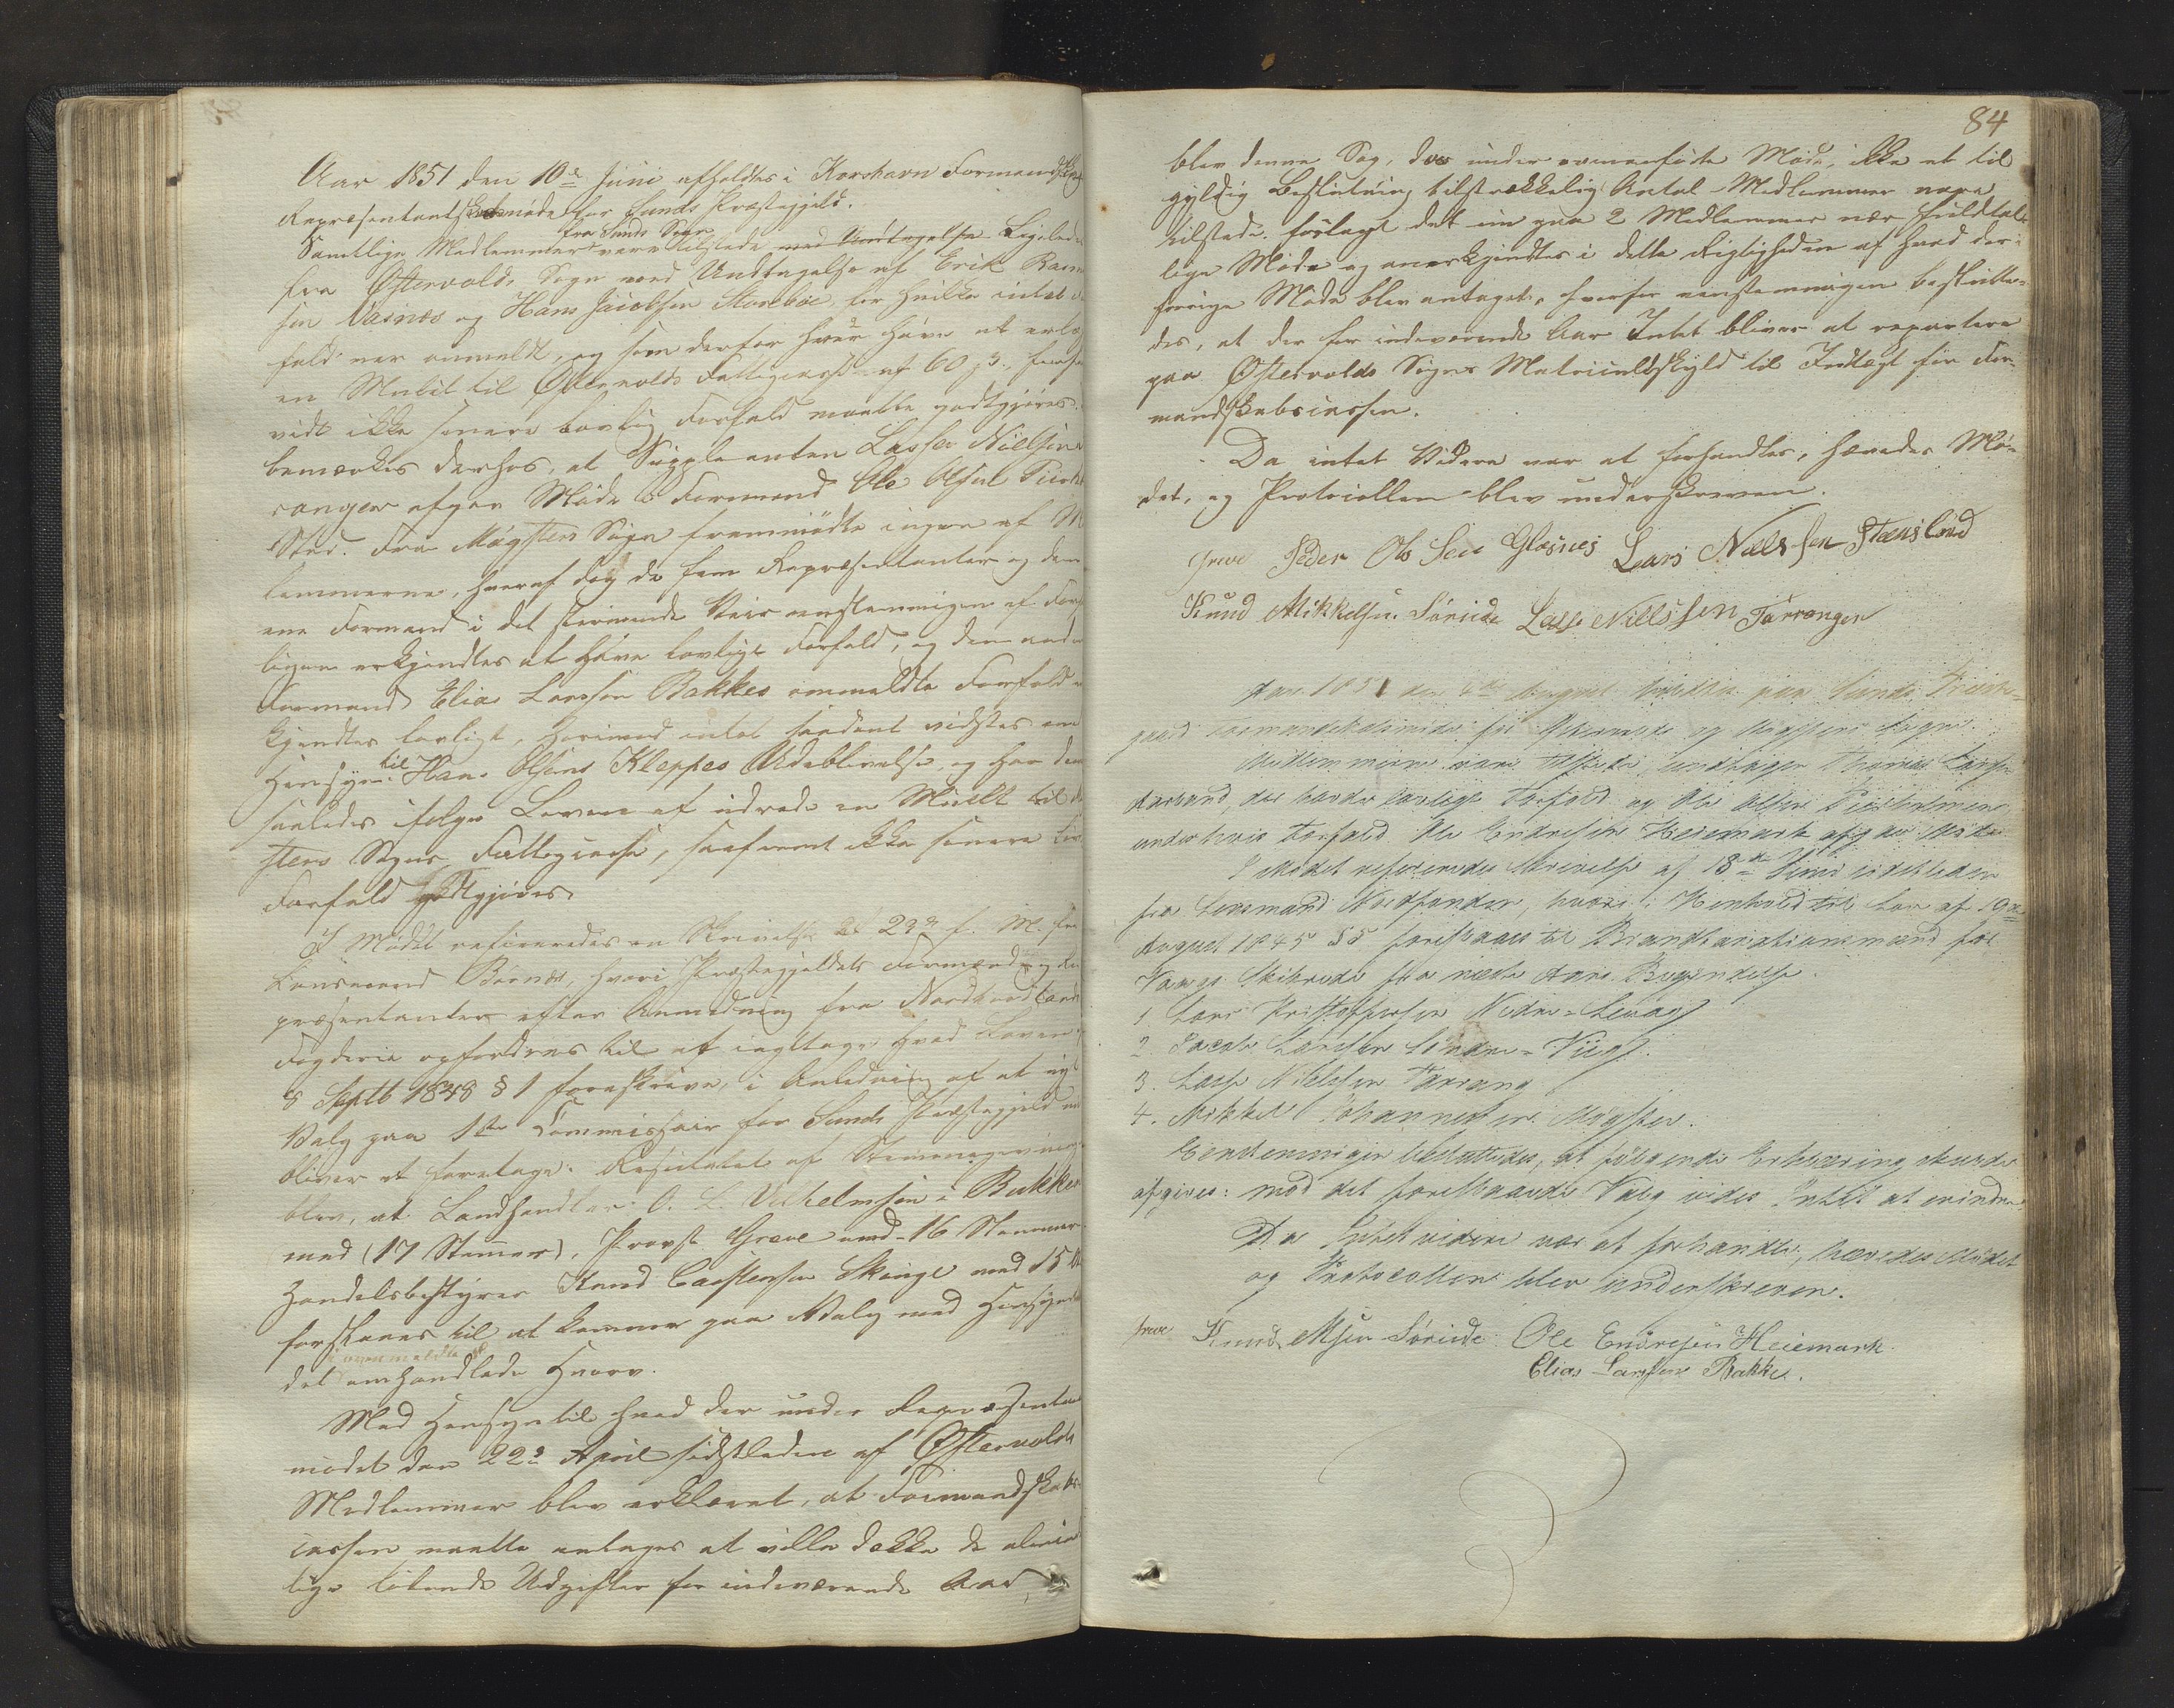 Aar 1851 den 10de Juni afholdtes i Korshavn Formandskabs
Repræsentantskabsmøde for Sunds Præstegjeld.
Samtlige Medlemmer fra Sunds Sogn vare tilstede med Undtagelse Ligeledes
fra Østervolds Sogn med Undtagelse af Erik Rasmus
sen Vasnes og Hans Jacobsen Storeboe, for hvilke intet
fald var anmeldt, og som derfor hver have at erlæg
en Mulct til Østervolds Fattigcasse af 60 s., forsaa
vidt ikke senere lovlig Forfald maatte godtgjøres.
bemærkes derhos, at Suppleanten Lasse Nielsen
ranger afgav Møde i Formand Ole Olsen
Sted. Fra Møgsters Sogn fremmødte ingen af M
lemmerne, hvoraf dog de fem Repræsentanter og den
ene Formand i det stormende Veir enstemmigen af
ligen erkjendtes at have lovligt Forfald, og den anden
Formand Elias Larssen Bakkes anmeldte Forfald
kjendtes lovligt, hvorimod intet saadant vidstes
Hensyn til Hans Olsens Kleppes Udeblivelse, og har denne
saaledes ifølge Loven at udrede en Mulct til
sters Sogns Fattigcasse, saafremt ikke senere
Forfald godtgjøres.
I Mødet refereredes en Skrivelse af 29de f. M. fra
Lensmand Børnes, hvori Præstegjeldets Formænd og Re
præsentanter efter Anmodning fra Nordhordlands
Fogderie opfordres til at iagttage hvad Loven
8 Septb 1848 § 1 foreskriver, i Anledning af at nyt
Valg paa 1ste Commissair for Sunds Præstegjeld
bliver at foretage. Resultatet af Stemmegivningen
blev, at Landhandler O. L. Vilhelmsen i Bekker
med (17 Stemmer), Provst Greve med 16 Stemmer
Handelsbestyrer Knud Carstensen Skoge med 15
forslaaes til at komme paa Valg med Hensyn
det ovenmeldte omhandlede Hverv.
Med Hensyn til hvad der under Repræsentant
mødet den 22de April sidstleden af Østervolds
Medlemmer blev erklæret, at Formandskabs
cassen maatte antages at ville dække de
lige løbende Udgifter for indeværende Aar,
84
blev denne Sag, da under ovenanførte Møde, ikke et til
gyldig Beslutning tilstrækkelig Antal Medlemmer vare
tilstede, forelagt det nu paa 2 Medlemmer nær fuldtal-
lige Møde og anerkjendtes i dette Rigtigheden af hvad der i
forrige Møde blev antaget, hvorfor eenstemmigen besluttedes-
des, at der for indeværende Aar Intet bliver at repartere
paa Østervolds Sogns Matriculskyld til Indtægt for For-
mandskabscassen.
Da intet Videre var at forhandles, hævedes Mø-
det, og Protocollen blev underskreven.
Greve Peder Ols Sen Glesnes Lars Nielssen Steensland
Knud Mikkelsen Søreide Lasse Nillssen Tarranger
Aar 1851 den 4de August holdtes paa Sunds Præste-
gaard Formandskabsmøde for Østervolds og Møgsters Sogne.
Medlemmerne vare tilstede, undtagen Thomas Larsen
, der havde lovligt Forfald og Ole Olsen
under hvis Forfald Ole Endresen Heiemark afgav Møde.
I Mødet refereredes Skrivelse af 13de Juni sidstleden
fra Lensmand , hvori i Henhold til Lov af 19de
August 1845 § 5 foreslaaes til Brandtaxationsmænd for
Vaags Skibrede fra næste Aars Begyndelse.
1. Lars Kristoffersen Nedre-
2. Jacob Larssen -
3. Lasse Nielssen Tarrang
4. Mikkel Johannessen Møgster.
Eenstemmigen besluttedes, at følgende Erklæring skulde
afgives: mod det foreslaaede Valg vides Intet at erindre.
Da Intet videre var at forhandle, hævedes Mødet
og Protocollen blev underskreven.
Greve Knud Msen Søreide Ole Endresen Heiemark.
Elias Larssen Bakke.